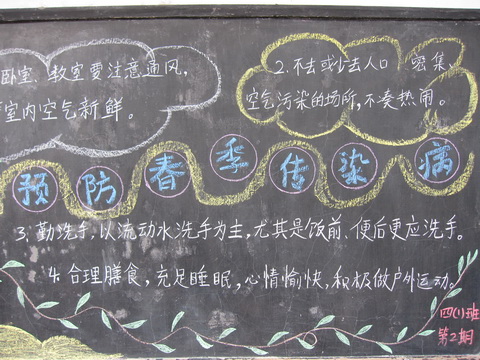 卧室、教室要注意通风,
室内空气新鲜。
2.不去或少去人口 密集,
空气污染的场所,不凑热闹。
预防春季传染病
3.勤洗手,以流动水洗手为主,尤其是饭前、便后更应洗手。
4.合理膳食,充足睡眠,心情愉快,积极做户外运动。
四(1)班
第2期